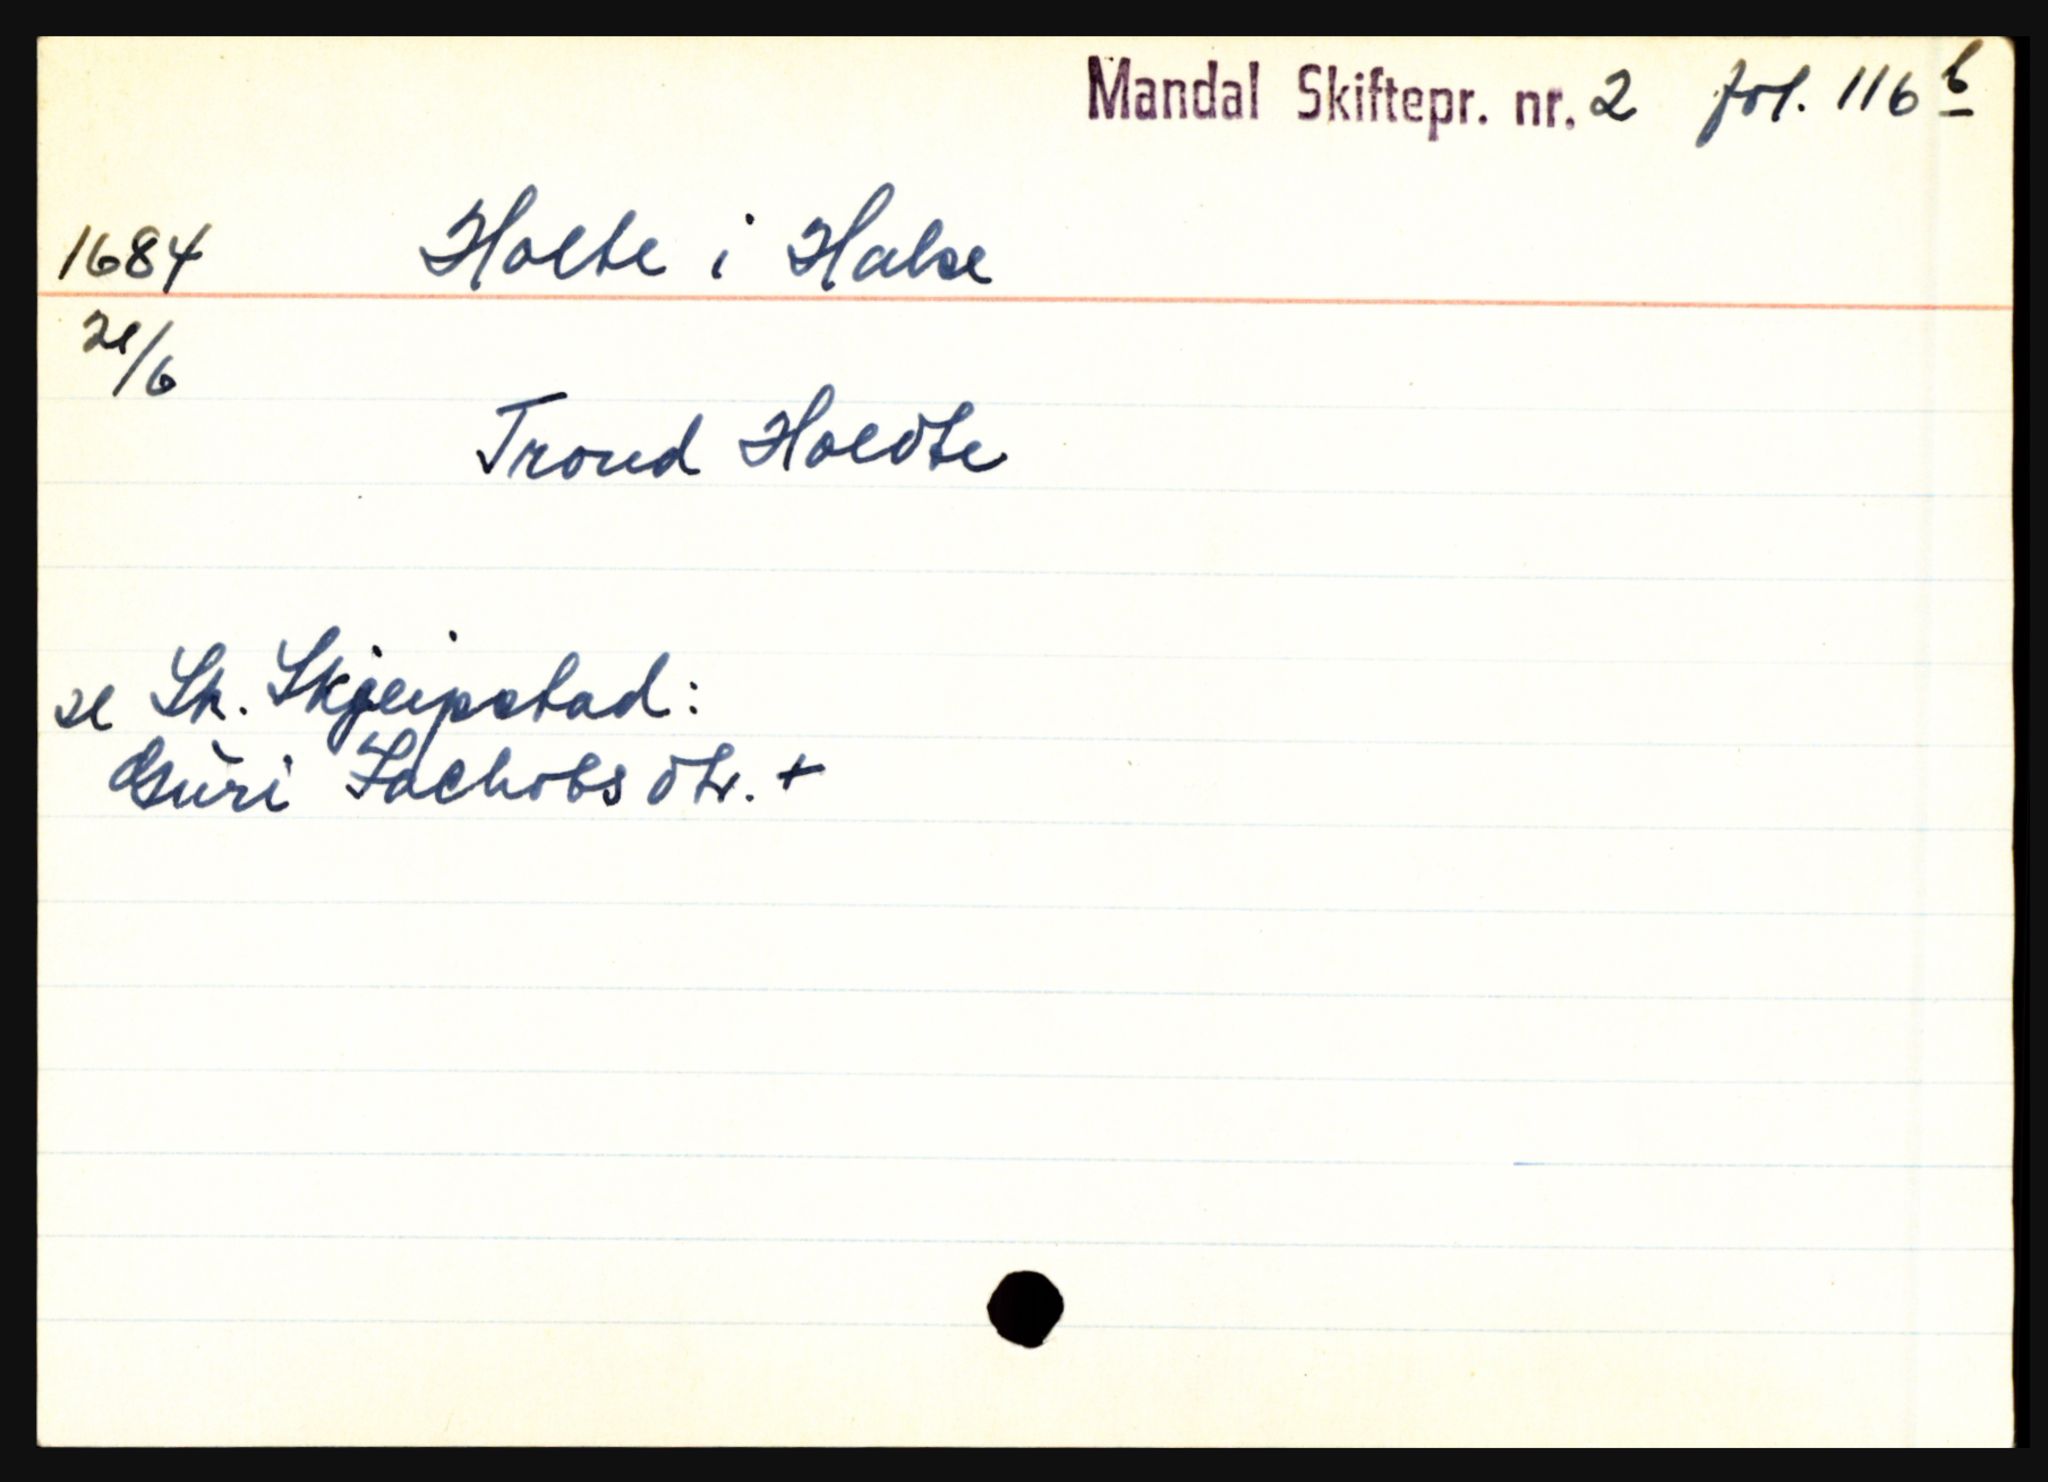 Mandal Skiftepr. nr. 2 fol. 116 b
1684 Holte i Halse
21/6
Trond Holdte
se Sk. Skjeipstad:
Guri Jachobsdtr. +